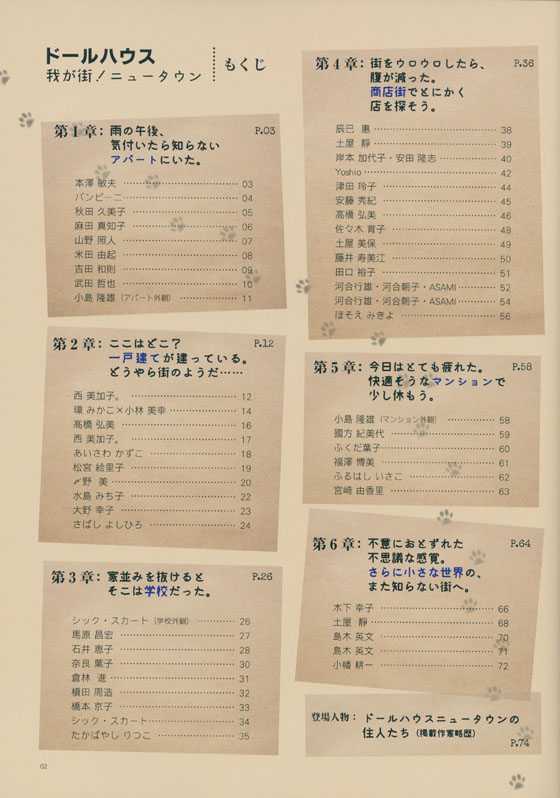 ドールハウス
我が街!ニュータウン
もくじ
第1章: 雨の午後、 P.03
気付いたら知らない
アパートにいた。
本澤 敏夫 03
バンビーニ 04
秋田 久美子 05
麻田 真知子 06
山野 照人 07
米田 由起 08
吉田 和則 09
武田 哲也 10
小島 隆雄(アパート外観) 11
第2章: ここはどこ? P.12
一戸建てが建っている。
どうやら街のようだ……
西 美加子。 12
環 みかこ×小林 美幸 14
高橋 弘美 16
西 美加子。 17
あいさわ かずこ 18
松宮 絵里子 19
〆野 美 20
水島 みち子 22
大野 幸子 23
さばし よしひろ 24
第3章: 家並みを抜けると P.26
そこは学校だった。
シック・スカート(学校外観) 26
馬原 昌宏 27
石井 恵子 28
奈良 葉子 30
倉林 進 31
槇田 周造 32
橋本 京子 33
シック・スカート 34
たかばやし りつこ 35
第4章: 街をウロウロしたら、 P.36
腹が減った。
商店街でとにかく
店を探そう。
辰已 惠 38
土屋 靜 39
岸本 加代子・安田 隆志 40
Yoshio 42
津田 玲子 44
安藤 秀紀 45
高橋 弘美 46
佐々木 育子 48
土屋 美保 49
藤井 寿美江 50
田口 裕子 51
河合行雄・河合朝子・ASAMI 52
河合行雄・河合朝子・ASAMI 54
ほそえ みきよ 56
第5章: 今日はとても疲れた。 P.58
快適そうなマンションで
少し休もう。
小島 隆雄(マンション外観) 58
國方 紀美代 59
ふくだ葉子 60
福澤 博美 61
ふるはし いさこ 62
宮崎 由香里 63
第6章: 不意におとずれた P.64
不思議な感覚。
さらに小さな世界の、
また知らない街へ。
木下 幸子 66
土屋 靜 68
島木 英文 70
島木 英文 71
小幡 耕一 72
登場人物: ドールハウスニュータウンの
住人たち(掲載作家略歴)
P.74
02